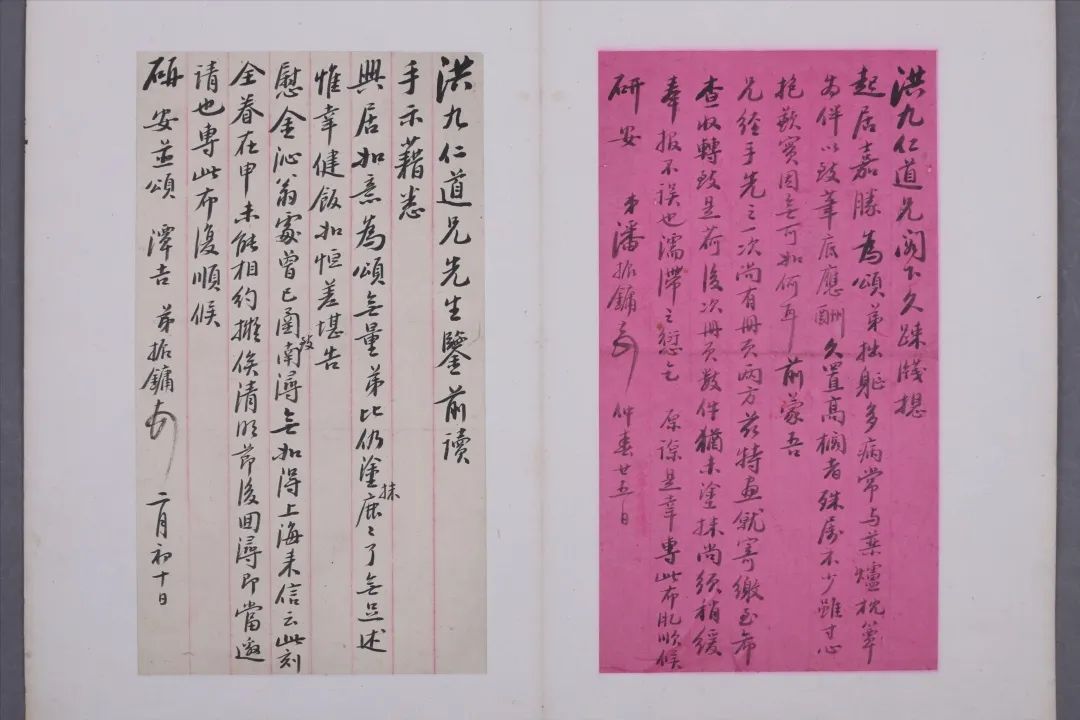 洪九仁道兄阁下久疎牋想
起居嘉勝為頌弟拙軀多病常与藥爐枕簟
為伴以致筆底應酬久置高擱者殊属不少雖寸心
抱歉實因無可如何耳 前蒙吾
兄經手先之一次尚有冊頁两方兹特畫就寄繳至希
查收轉致是荷後次冊頁数件猶未塗抹尚須稍緩
奉报不误也濡滯之愆乞 原諒是幸專此布肊順候
研安 弟潘振鏞 仲春廿五日
洪九仁道兄先生鑒前讀
手示藉悉
興居如意為頌無量弟比仍塗抹鹿鹿了無足述
惟幸健飯如恒差堪告
慰金沁翁處曾已函致南潯無如得上海来信云此刻
全眷在申未能相約擬俟清明節後回潯即當邀
請也專此布復順候
研安並頌 潭吉 弟振鏞 二月初十日